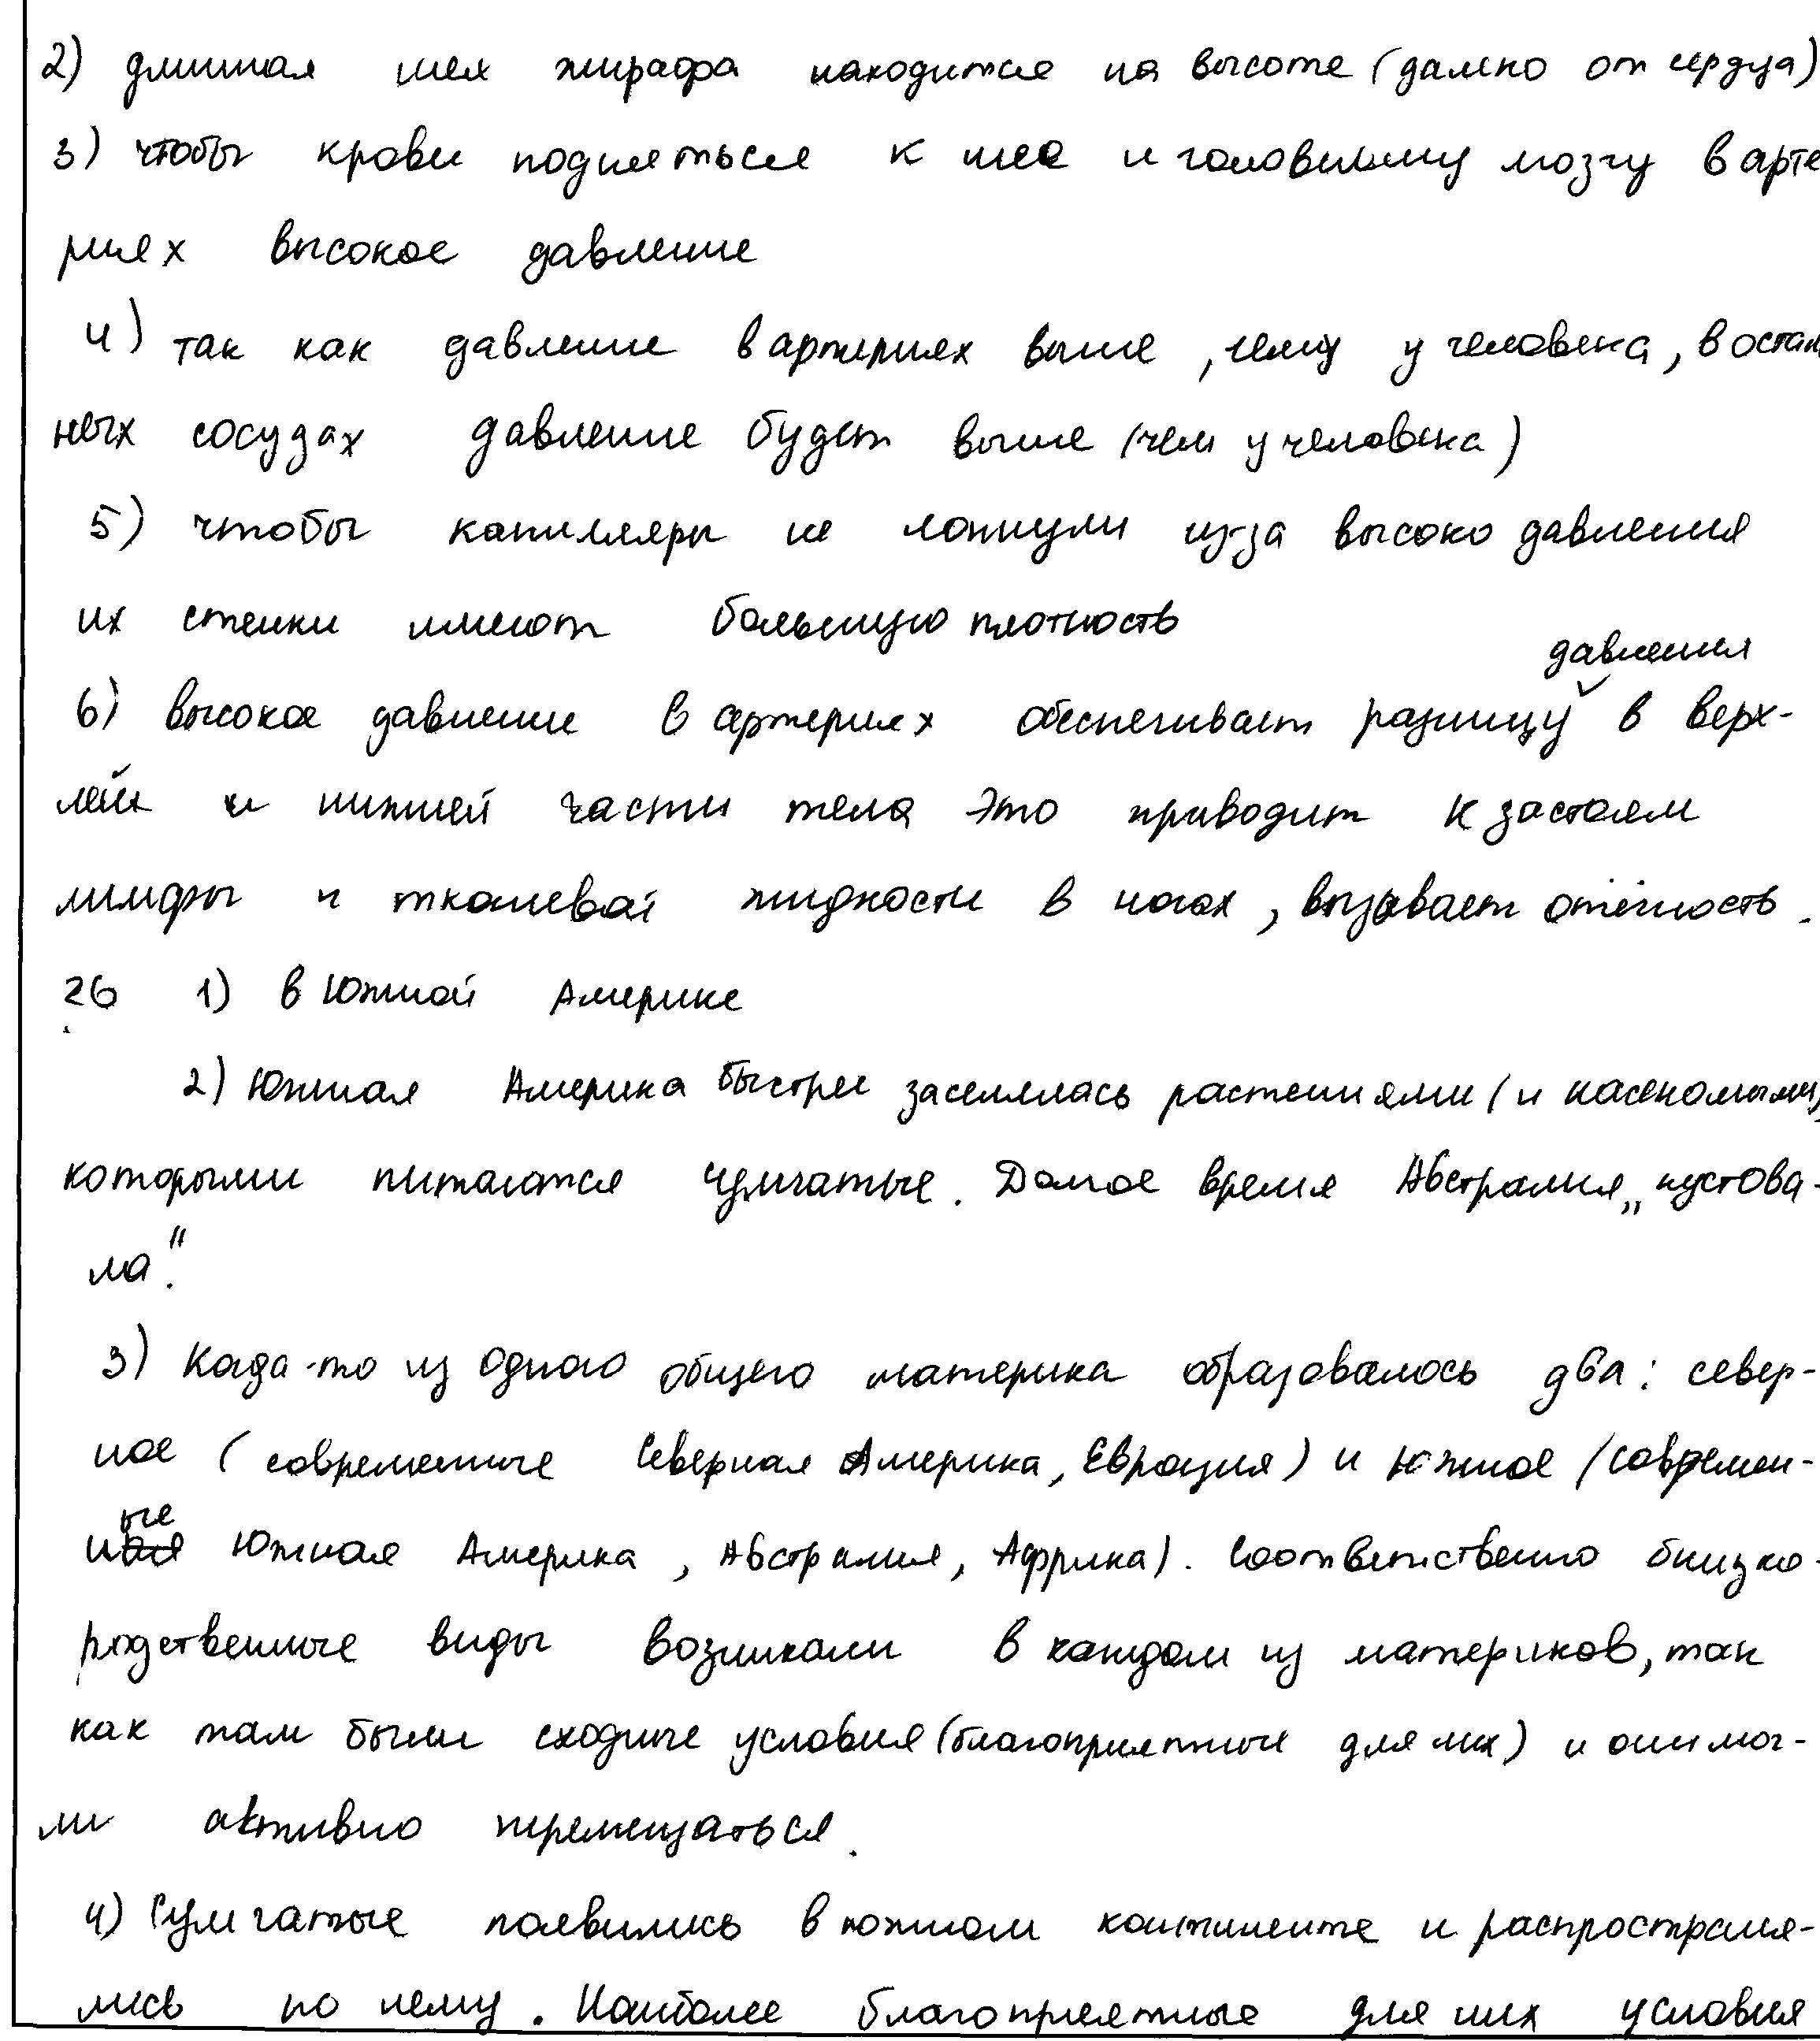 2) длинная шея жирафа находится на высоте (далеко от сердца)
3) чтобы крови подняться к шее и головному мозгу в арте
риях высокое давление
4) так как давление в артериях выше, чем у человека, в осталь
ных сосудах давление будет выше (чем у человека)
5) чтобы капилляры не лопнули из-за высоко давления
их стенки имеют большую плотность
давления
6) высокое давление в артериях обеспечивает разницу в верх-
ней и нижней части тела это приводит к застоям
лимфы и тканевой жидкости в ногах, вызывает отёчность.
26 1) в Южной Америке
2) Южная Америка быстрее заселялась растениями (и насекомыми),
которыми питаются сумчатые. Долгое время Австралия „пустова-
ла".
3) Когда-то из одного общего материка образовалось два: север-
ное (современные Северная Америка, Евразия) и южное (современ-
ные Южная Америка, Австралия, Африка). Соответственно близко-
родственные виды возникали в каждом из материков, так
как там были сходные условия (благоприятные для них) и они мог-
ли активно перемещаться.
4) Сумчатые появились в южном континенте и распространя-
лись по нему. Наиболее благоприятные для них условия